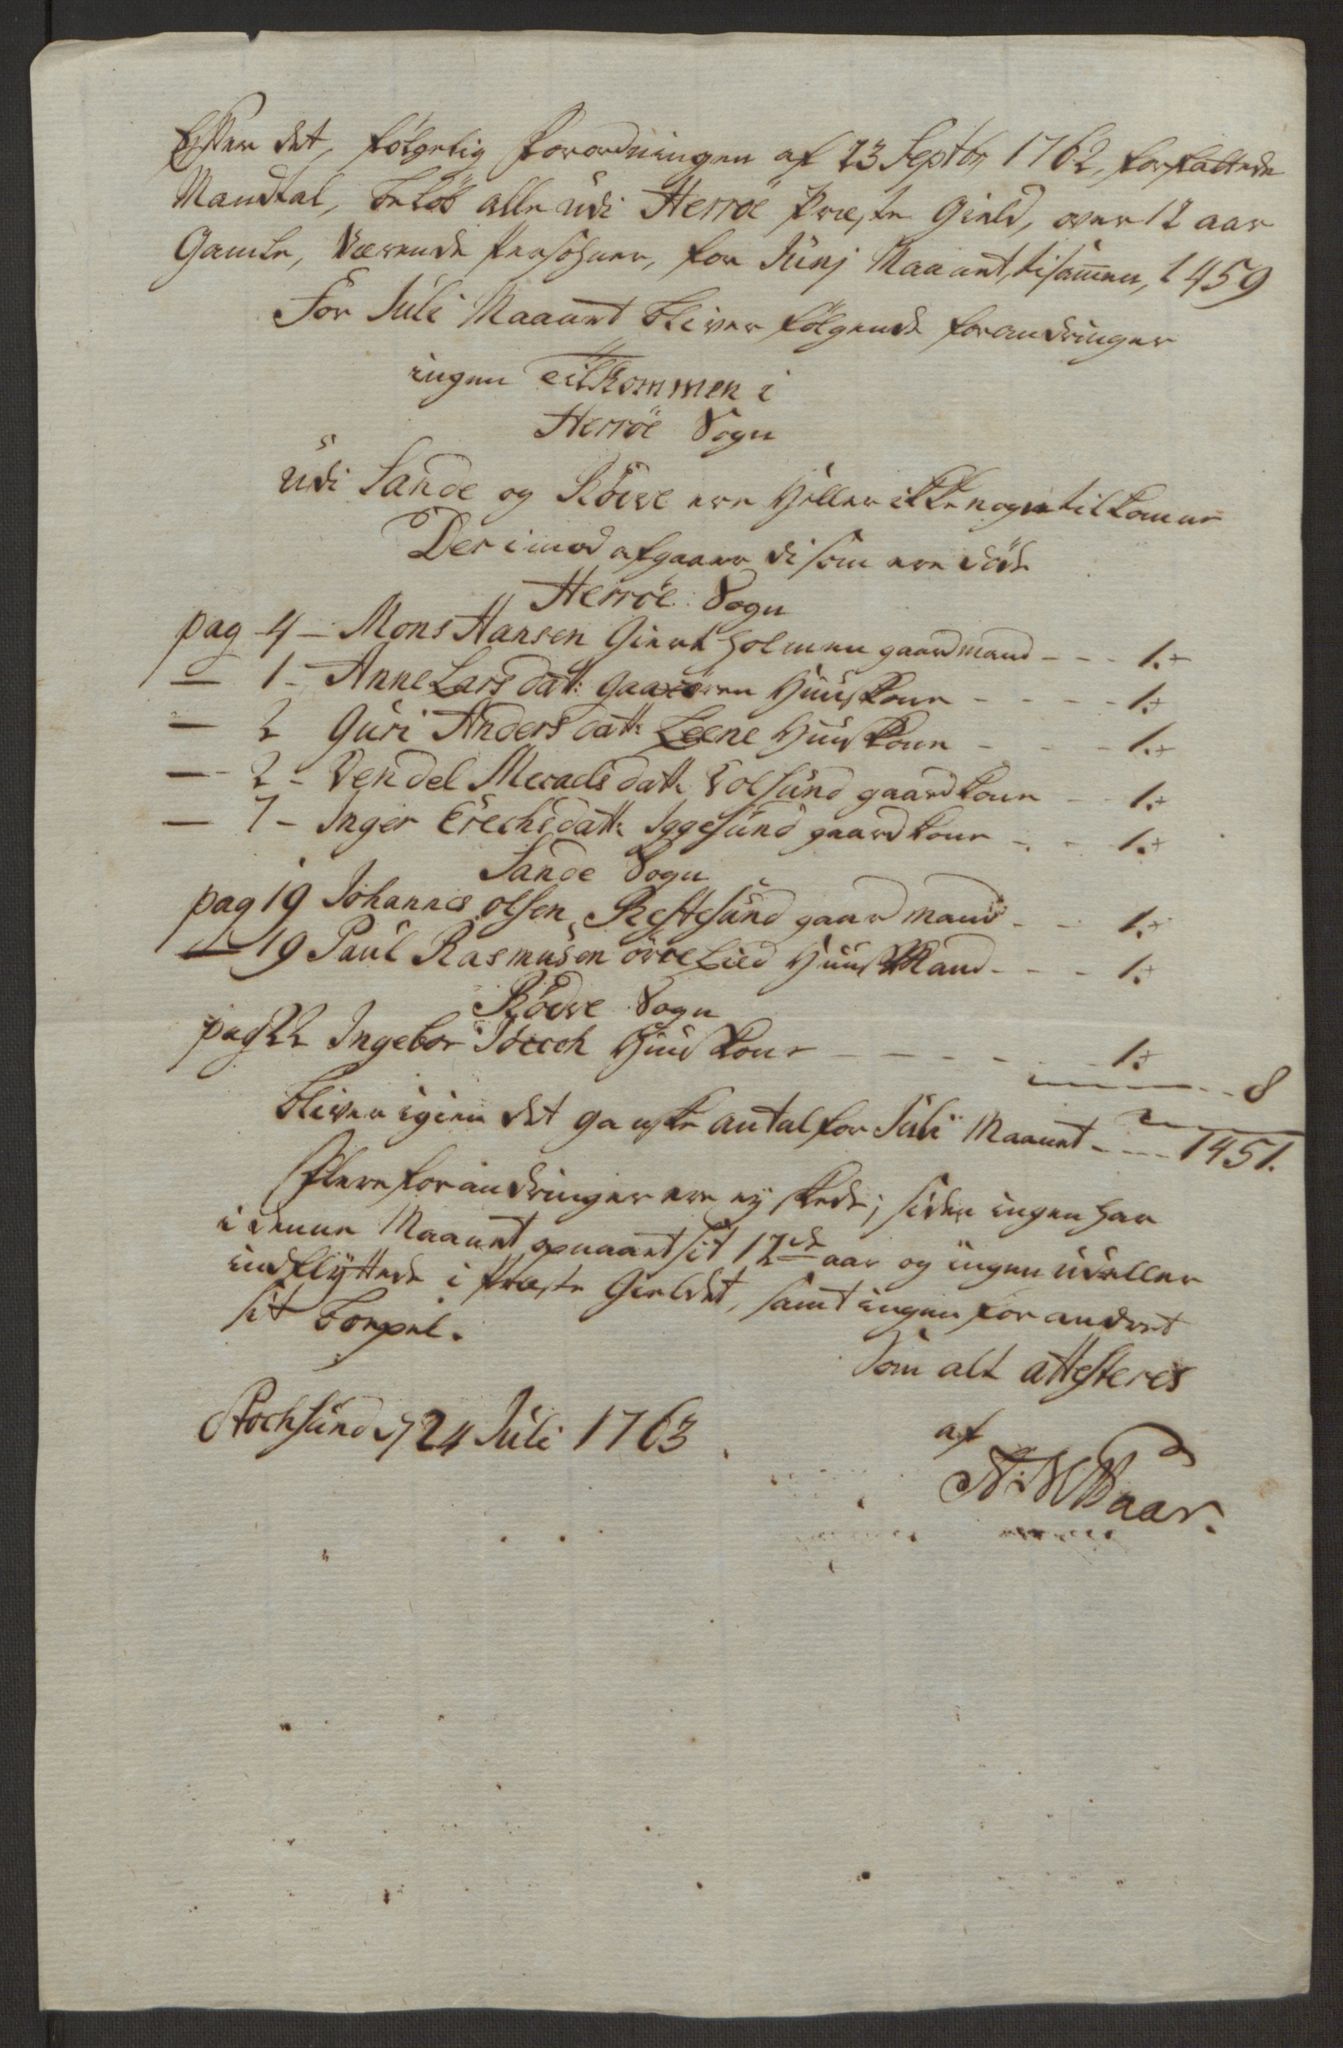 Efter det, følgelig Forordningen af 23 Septbr 1762, forfattede
Mandtal, beløb alle udi Herröe Præste Gield, over 12 aar
Gamle, Værende Persohner, for Junj Maanet, tilsamen, 1459
For Juli Maanet bliver følgende forandringer
ingen tilkommen i
Herröe Sogn
Udi Sande og Röwe ere heller ikke nogen tilkomne
Derimod afgaaer di som ere døde
Herröe Sogn
pag 4 - Mons Hansen Gierholmen gaardmand - - - 1.
— 1 - Anne Lars dat: huuskone - - - - 1.
— 2 Guri Anders datt: Leene huuskone - - - 1.
— 2 - Vendel datt: Volsund gaardkone - - 1.
— 7 - Inger Erechsdatt: Iggesund gaardkone - - - 1.
Sande Sogn
pag 19 Johannes olsen Kestesund gaardmand - - - 1.
— 19 Paul Rasmusen huusmand - - - 1.
Röwe Sogn
pag 22 Ingebor huuskone - - - - - 1.
8
bliver igien det gandske antal for Juli Maanet - - - 1451.
flere forandringer ere ey skede; siden ingen har
i denne Maanet opnaaet sit 12de aar og ingen ud eller
indflyttede i Præste Gieldet, samt ingen forandret
sit boepæl.
Som alt attesteres
Rochsund d 24 Juli 1763
af